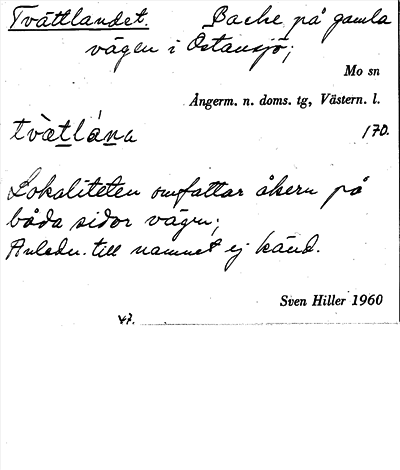 Tvättlandet. Backe på gamla
vägen i Östansjö;
Mo sn
Ångerm. n. doms. tg, Västern. l.
tvætlána 170.
Lokaliteten omfattar åkern på
båda sidor vägen;
Anledn. till namnet ej känd.
Sven Hiller 1960